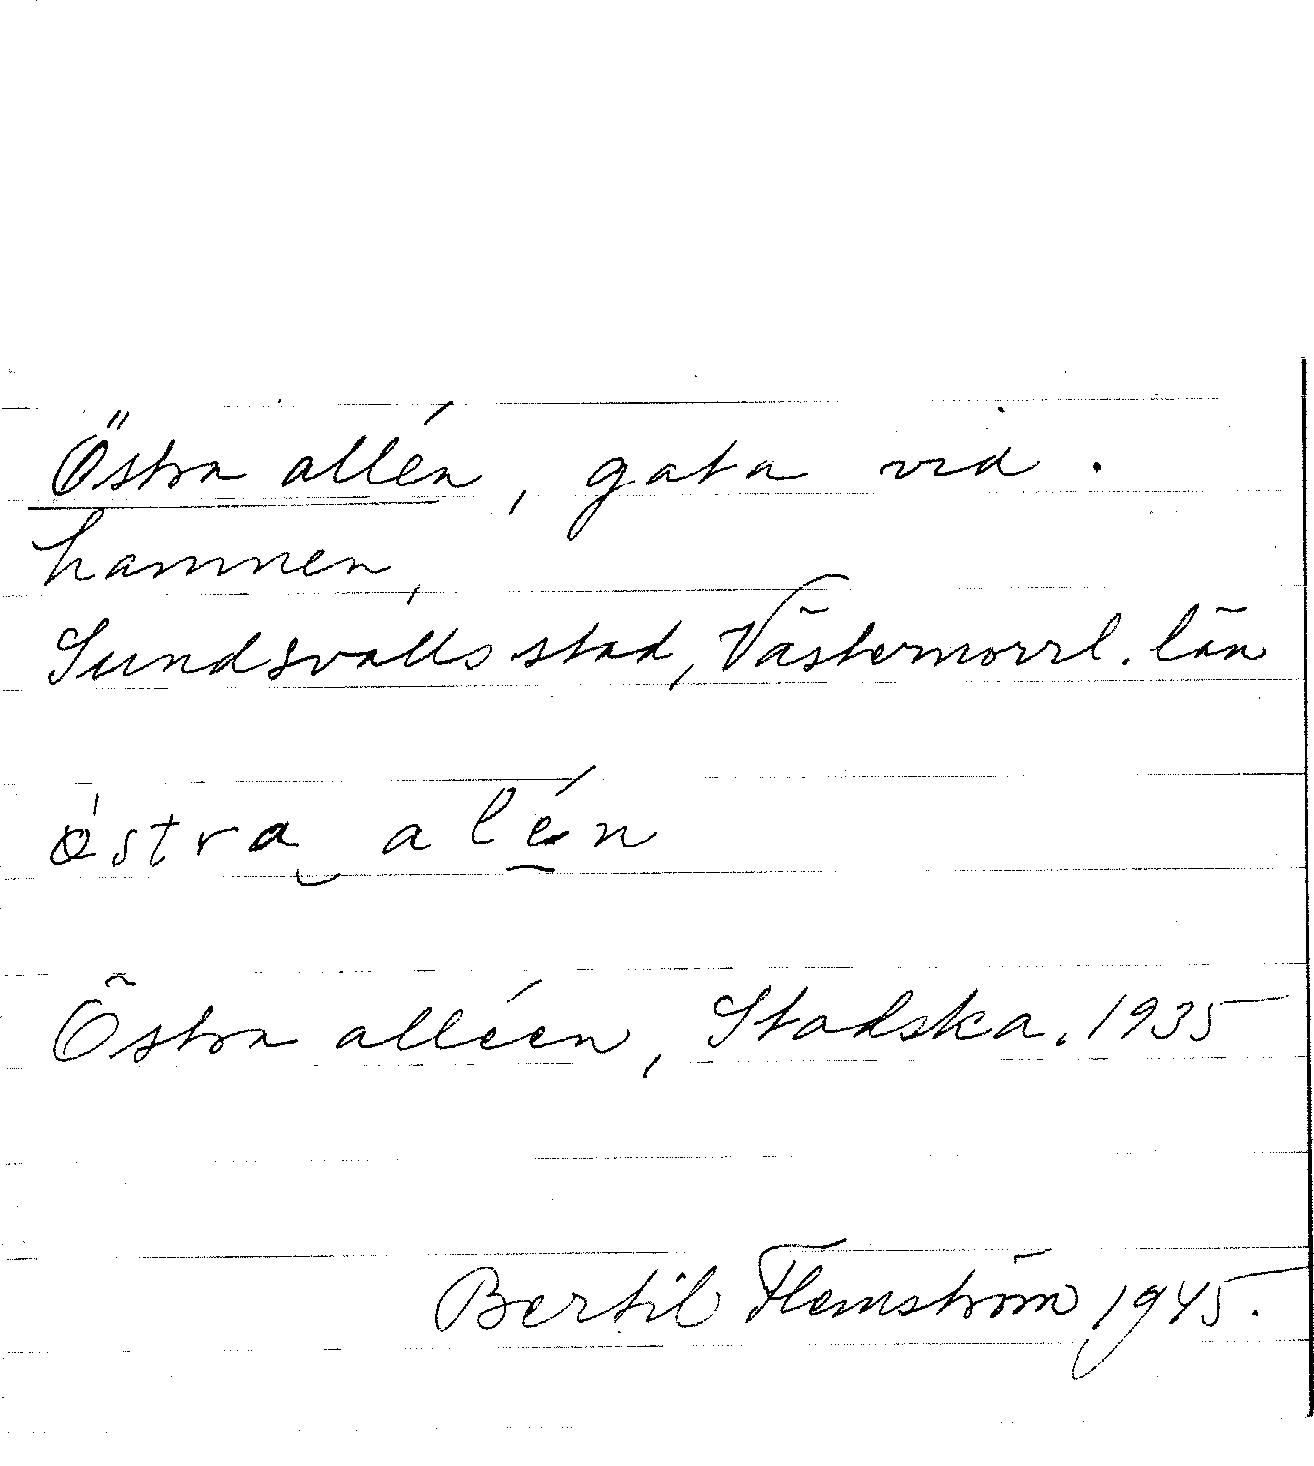 Östra allén, gata vid
hamnen,
Sundsvalls stad, Västernorrl. län
östra alén
Östra alléen, Stadska. 1935
Bertil Flemström 1945.